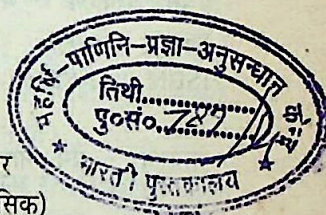 महर्षि-पाणिनि-प्रज्ञा-अनुसन्धान
तिथी..........
पु०सं०...787...
भारती पुस्तकालय
र
सिक)